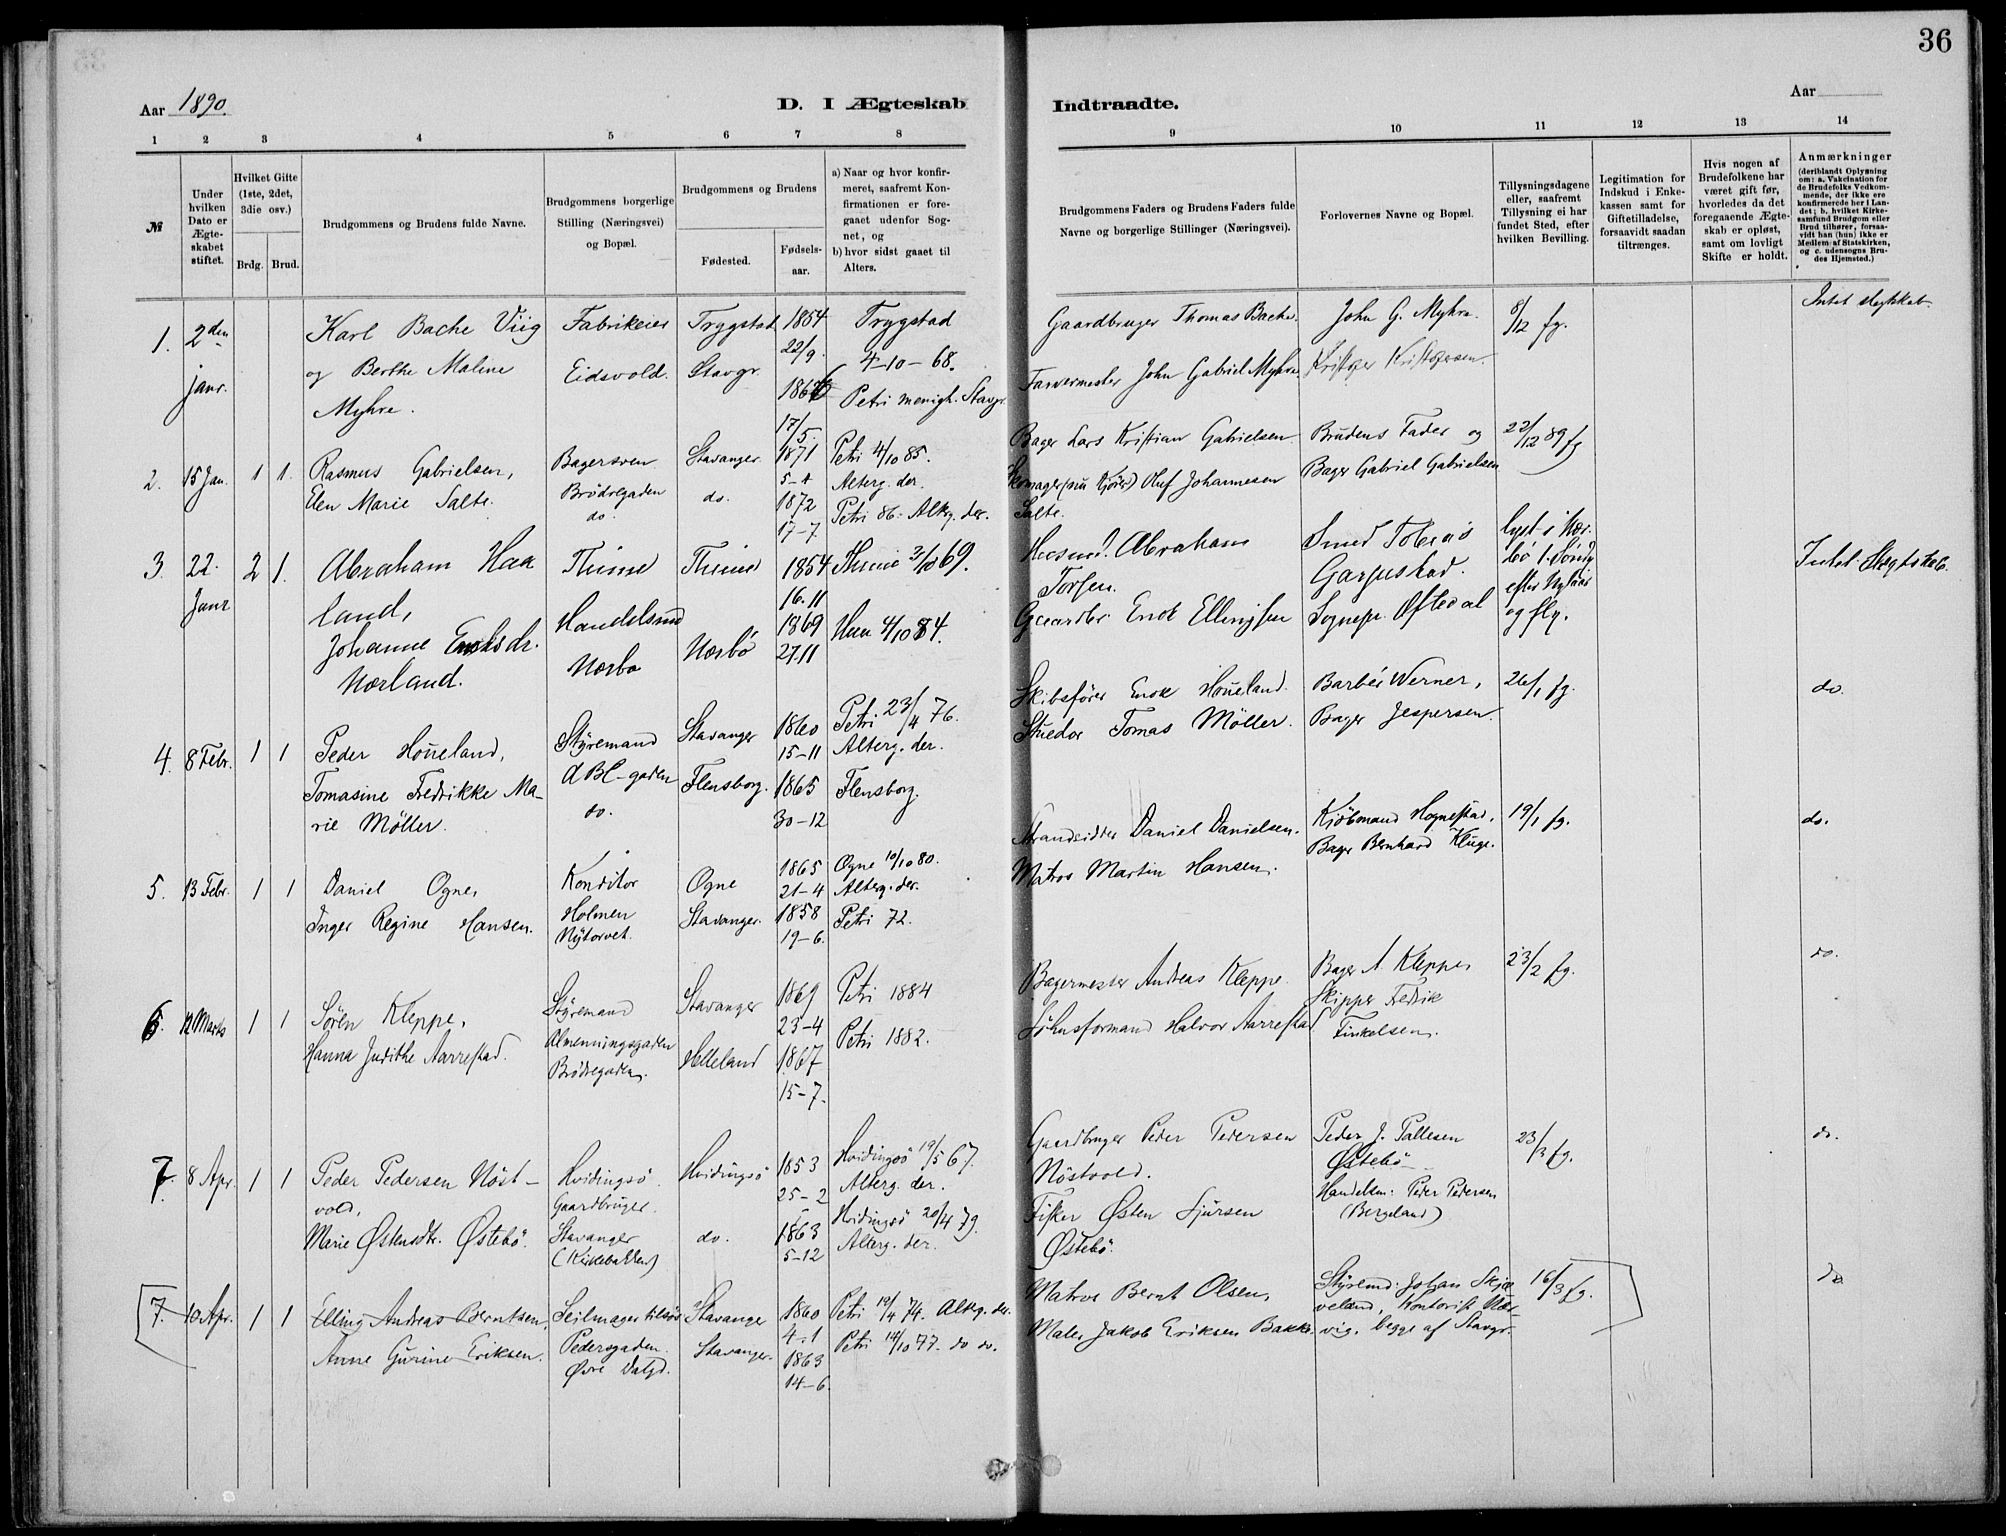 36
Aar 1890.
D. I Ægteskab Indtraadte.
Aar
1 2 3 4 5 6 7 8 9 10 11 12 13 14
№
Under hvilken Dato er Ægteskabet stiftet.
Hvilket Gifte (1ste, 2det, 3die osv.)
Brdg. Brud.
Brudgommens og Brudens fulde Navne.
Brudgommens borgerlige Stilling (Næringsvei) og Bopæl.
Brudgommens og Brudens
Fødested.
Fødselsaar.
a) Naar og hvor konfirmeret, saafremt Konfirmationen er foregaaet udenfor Sognet, og
b) hvor sidst gaaet til Alters.
Brudgommens Faders og Brudens Faders fulde Navne og borgerlige Stillinger (Næringsvei).
Forlovernes Navne og Bopæl.
Tillysningsdagene eller, saafremt Tillysning ei har fundet Sted, efter hvilken Bevilling.
Legitimation for Indskud i Enkekassen samt for Giftetilladelse, forsaavidt saadan tiltrænges.
Hvis nogen af Brudefolkene har været gift før, hvorledes da det foregaaende Ægteskab er opløst, samt om lovligt Skifte er holdt.
Anmærkninger (deriblandt Oplysning om: a. Vakcination for de Brudefolks Vedkommende, der ikke ere konfirmerede her i Landet; b. hvilket Kirkesamfund Brudgom eller Brud tilhører, forsaavidt han (hun) ikke er Medlem af Statskirken, og c. udensogns Brudes Hjemsted.)
1. 2den Janr.
Karl Bache Viig
og Berthe Maline
Myhre.
Fabrikeier
Eidsvold.
Trygstad
Stavgr.
1854
22/9.
1866
17/5.
Trygstad
4-10-68.
Petri menigh. Stavgr.
Gaardbruger Thomas Bache.
Farvermester John Gabriel Myhre.
John G. Myhre.
Kristofer Kristofersen.
8/12 fg.
Intet slegtskab
2. 15 Jan. 1 1.
Rasmus Gabrielsen,
Elen Marie Salte.
Bagersven
Brødregaden
do.
Stavanger
do.
1871
5-4
1872
17-7
Petri 4/10 85.
Alterg. der.
Petri 86. Alterg. der.
Bager Lars Kristian Gabrielsen
Skomager (nu Kjører) Oluf Johannesen
Salte.
Brudens Fader og
Bager Gabriel Gabrielsen
22/12 89 fg
3. 22. Janr 2 1.
Abraham Haa
land,
Johanne Enoksdr.
Nærland.
Thime
Handelsmd
Nærbø
Thime
Nærbø
1854
16.11
1869
27.11
Thime 3/10 69.
Haa 4/10 84.
Husmd. Abraham
Torsen.
Gaardbr Enok Ellingsen
Smed Tobias
Sognepr. Oftedal
lyst i Nær-
bø 1. Søndg
efter Nytaar
og flg.
Intet Slegtskab.
4. 8 Febr. 1 1
Peder Houeland,
Tomasine Fredrikke Ma-
rie Møller.
Styremand
ABC-gaden
do.
Stavanger
Flensborg.
1860
15-11
1865
30-12
Petri 23/4 76.
Alterg. der.
Flensborg.
Skibsfører Enok Houeland.
Stuedor Tomas Møller.
Barber Werner,
Bager Jespersen.
26/1 fg.
do.
5. 13 Febr. 1 1
Daniel Ogne,
Inger Regine Hansen.
Konditor
Holmen
Nytorvet.
Ogne
Stavanger.
1865
21-4
1858
19-6.
Ogne 10/10 80.
Alterg. der.
Petri 72.
Strandsidder Daniel Danielsen.
Matros Martin Hansen.
Kjøbmand Hognestad,
Bager Bernhard Kluge.
19/1 fg.
do.
6. 12 Marts 1 1
Sören Kleppe,
Hanna Judithe Aarrestad.
Styremand
Almenningsgaden
Brødregaden.
Stavanger
Helleland
1869
23-4
1867
15-7.
Petri 1884
Petri 1882.
Bagermester Andreas Kleppe.
Halvor Aarrestad
Bager A. Kleppe,
Skipper Fredrik
Finkelsen.
23/2 fg.
do.
7. 8 Apr. 1 1
Peder Pedersen Nöst-
vold,
Marie Østensdtr. Østebö.
Hvidingsö
Gaardbruger.
Stavanger
(Kirkebakken)
Hvidingsö
do.
1853
25-2
1863
5-12
Hvidingsö 19/5 67.
Alterg. der.
Hvidingsö 20/4 79.
Alterg. der.
Gaardbruger Peder Pedersen
Nöstvold.
Fisker Østen Sjursen
Østebö.
Peder J. Pallesen
Østebö
Handelsm: Peder Pedersen
(Bergeland)
23/3 fg.
do.
7. 10 Apr. 1 1
Elling Andreas Berntsen,
Anne Gurine Eriksen.
Seilmager
Pedersgaden.
Øvre Dalgd.
Stavanger
Stavanger.
1860
4-1
1863
14-6.
Petri 19/4 74. Alterg. der.
Petri 14/10 77. do do.
Matros Bernt Olsen,
Maler Jakob Eriksen Bakke.
Styremd: Johan Skjæ
veland, Kontorist Nær-
vig. begge af Stavgr.
16/3 fg.
do